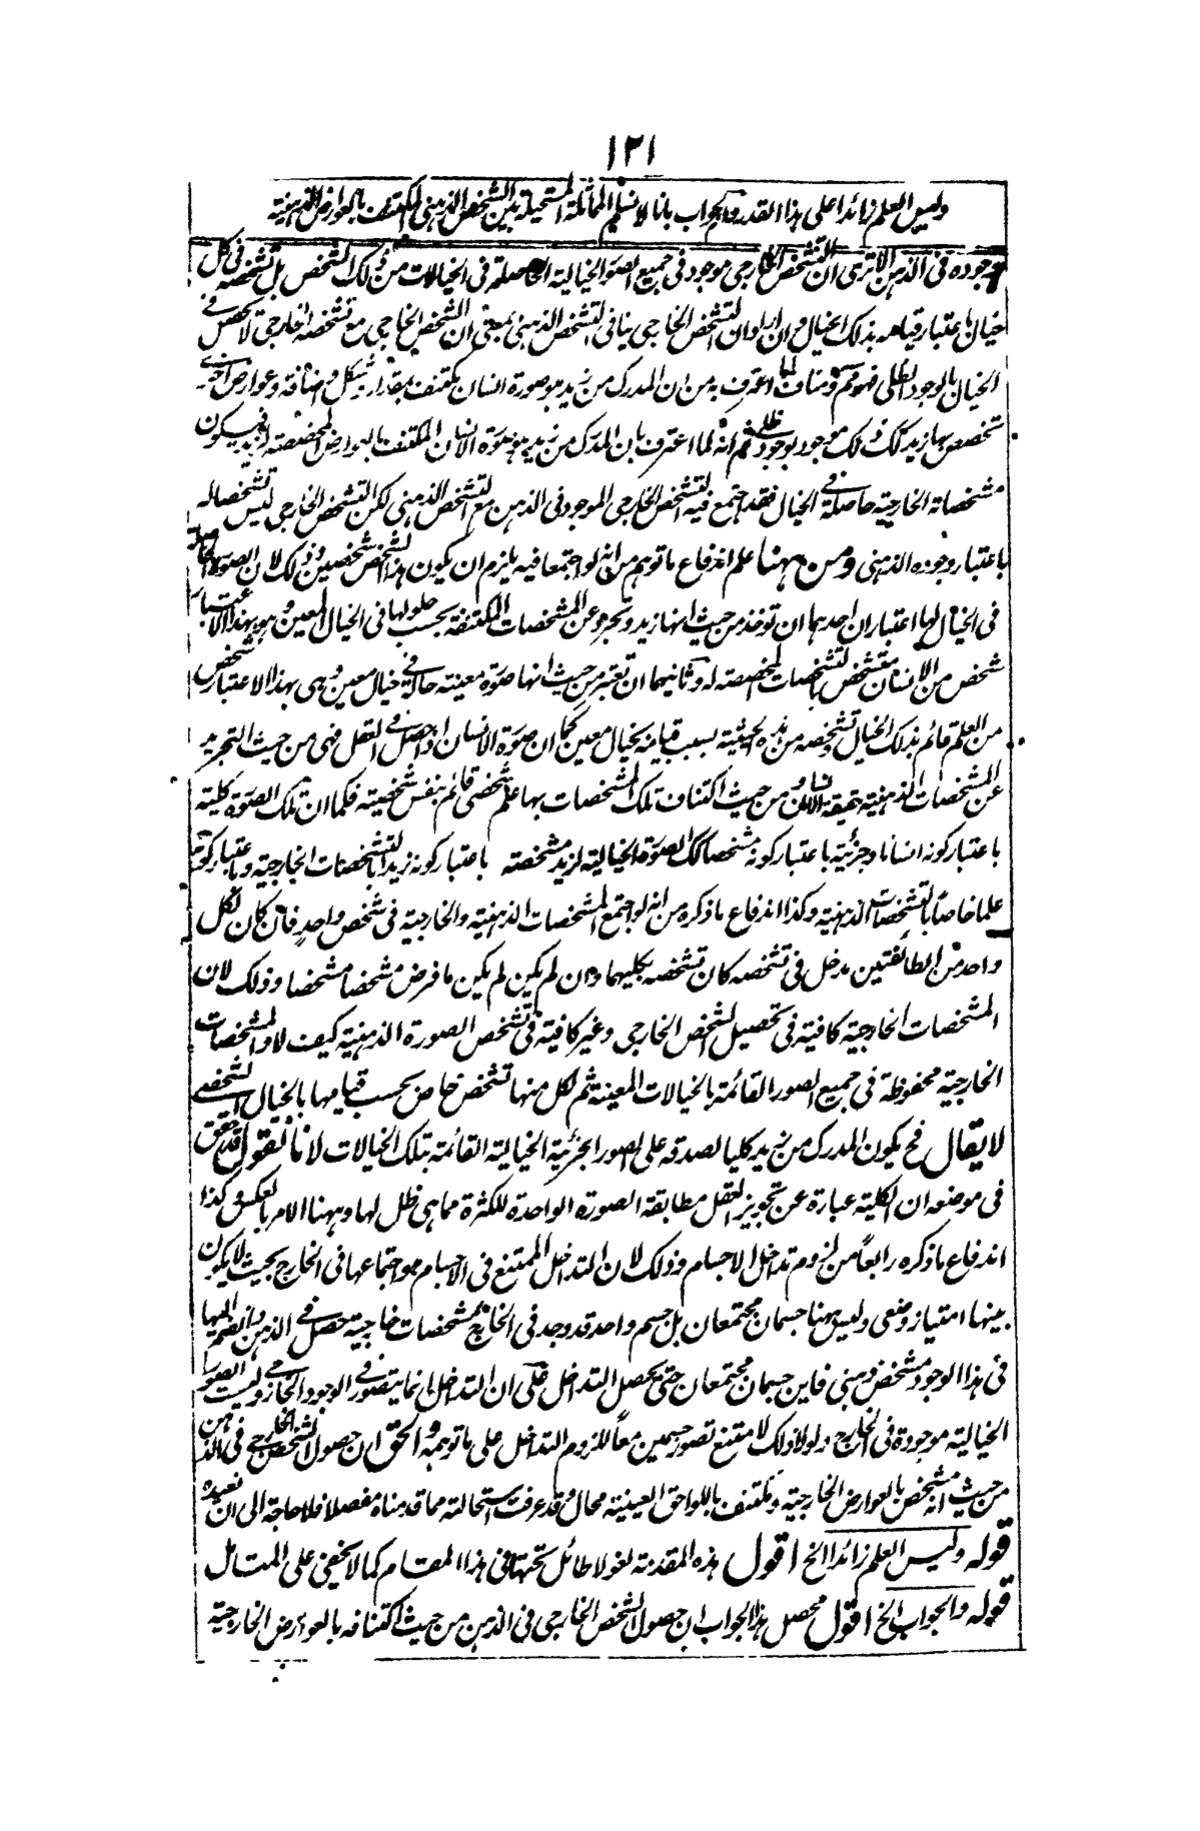 ١٢١
وليس العلم زائدا على هذا القدر والجواب بانا لا نسلم المماثلة المستحيلة بين الشخص الذهنى المكتنف بالعوارض الذهنية
وجوده فى الذهن الا ترى ان التشخص الخارجى موجود فى جميع الصور الخيالية الحاصلة فى الخيالات من ذلك الشخص بل تشخصه فى كل
خيال باعتبار قيامه بذلك الخيال وان اراد ان التشخص الخارجى ينافى التشخص الذهنى بمعنى ان الشخص الخارجى مع تشخصه الخارجى لا يحصل فى
الخيال بالوجود الظلى فهو مم ومناف لما اعترف به من ان المدرك من زيد هو صورة انسان مكتنف بمقدار وشكل واضافة وعوارض اخر
تخصص بها زيد كل ذلك موجود بوجود ظلى ثم انه لما اعترف بان المدرك من زيد هو صورة الانسان المكتنف بالعوارض المخصصة لزيد فيكون
مشخصاته الخارجية حاصلة فى الخيال فقد اجتمع فيه التشخص الخارجى الموجود فى الذهن مع التشخص الذهنى لكن التشخص الخارجى ليس تشخصا له
باعتبار وجوده الذهنى ومن ههنا علم اندفاع ما توهم من انه لو اجتمعا فيه يلزم ان يكون هذا الشخص شخصين وذلك لان الصورة الحاصلة
فى الخيال لها اعتباران احدهما ان توخذ من حيث انها زيد وتجرد عن المشخصات المكتنفة بحسب حلولها فى الخيال المعين وهو بهذا الاعتبار
شخص من الانسان متشخص بالتشخصات المخصصة له وثانيهما ان تعتبر من حيث انها صورة معينة حالة فى خيال معين وهى بهذا الاعتبار شخص
من العلم قائم بذلك الخيال وتشخصه من هذه الحيثية بسبب قيامه بخيال معين كما ان صورة الانسان اذا حصل فى العقل فهى من حيث التجريد
عن المشخصات الذهنية حقيقة الانسان ومن حيث اكتناف تلك المشخصات بها علم شخصى قائم بنفس شخصية فكما ان تلك الصورة كلية
باعتبار كونه انسانا وجزئية باعتبار كونه مشخصا كك الصورة الخيالية لزيد مشخصة باعتبار كونه زيدا بالتشخصات الخارجية وباعتبار كونه
علما خاصا بالتشخصات الذهنية وكذا اندفاع ما ذكره من انه لو اجتمع المشخصات الذهنية والخارجية فى شخص واحد فان كان لكل
واحد من الطائفتين مدخل فى تشخصه كان تشخصه بكليهما وان لم يكن لم يكن ما فرض مشخصا مشخصا وذلك لان
المشخصات الخارجية كافية فى تحصيل الشخص الخارجى وغير كافية فى تشخص الصورة الذهنية كيف لا والمشخصات
الخارجية محفوظة فى جميع الصور القائمة بالخيالات المعينة ثم لكل منها تشخص خاص بحسب قيامها بالخيال الشخصى
لا يقال فح يكون المدرك من زيد كليا لصدقه على الصور الجزئية الخيالية القائمة بتلك الخيالات لانا نقول قد حقق
فى موضعه ان الكلية عبارة عن تجويز العقل مطابقة الصورة الواحدة للكثرة مما هى ظل لها وههنا الامر بالعكس وكذا
اندفاع ما ذكره رابعا من لزوم تداخل الاجسام وذلك لان التداخل الممتنع فى الاجسام هو اجتماعها فى الخارج بحيث لا يكون
بينها امتياز وضعى وليس ههنا جسمان مجتمعان بل جسم واحد قد وجد فى الخارج بمشخصات خارجية حصل فى الذهن وانضم اليها
فى هذا الوجود مشخص ذهنى فاين جسمان مجتمعان حتى يحصل التداخل على ان التداخل انما يتصور فى الوجود الخارجى وليست الصور
الخيالية موجودة فى الخارج ولولا ذلك لامتنع تصور جسمين معا للزوم التداخل على ما توهمه والحق ان حصول الشخص الخارجى فى الذهن
من حيث انه مشخص بالعوارض الخارجية ومكتنف باللواحق العينية محال وقد عرفت استحالته مما قدمناه مفصلا فلا حاجة الى ان نعيده
قوله وليس العلم زائدا الخ اقول هذه المقدمة لغو لا طائل تحتها فى هذا المقام كما لا يخفى على المتامل
قوله والجواب الخ اقول محصل هذا الجواب ان حصول الشخص الخارجى فى الذهن من حيث اكتنافه بالعوارض الخارجية